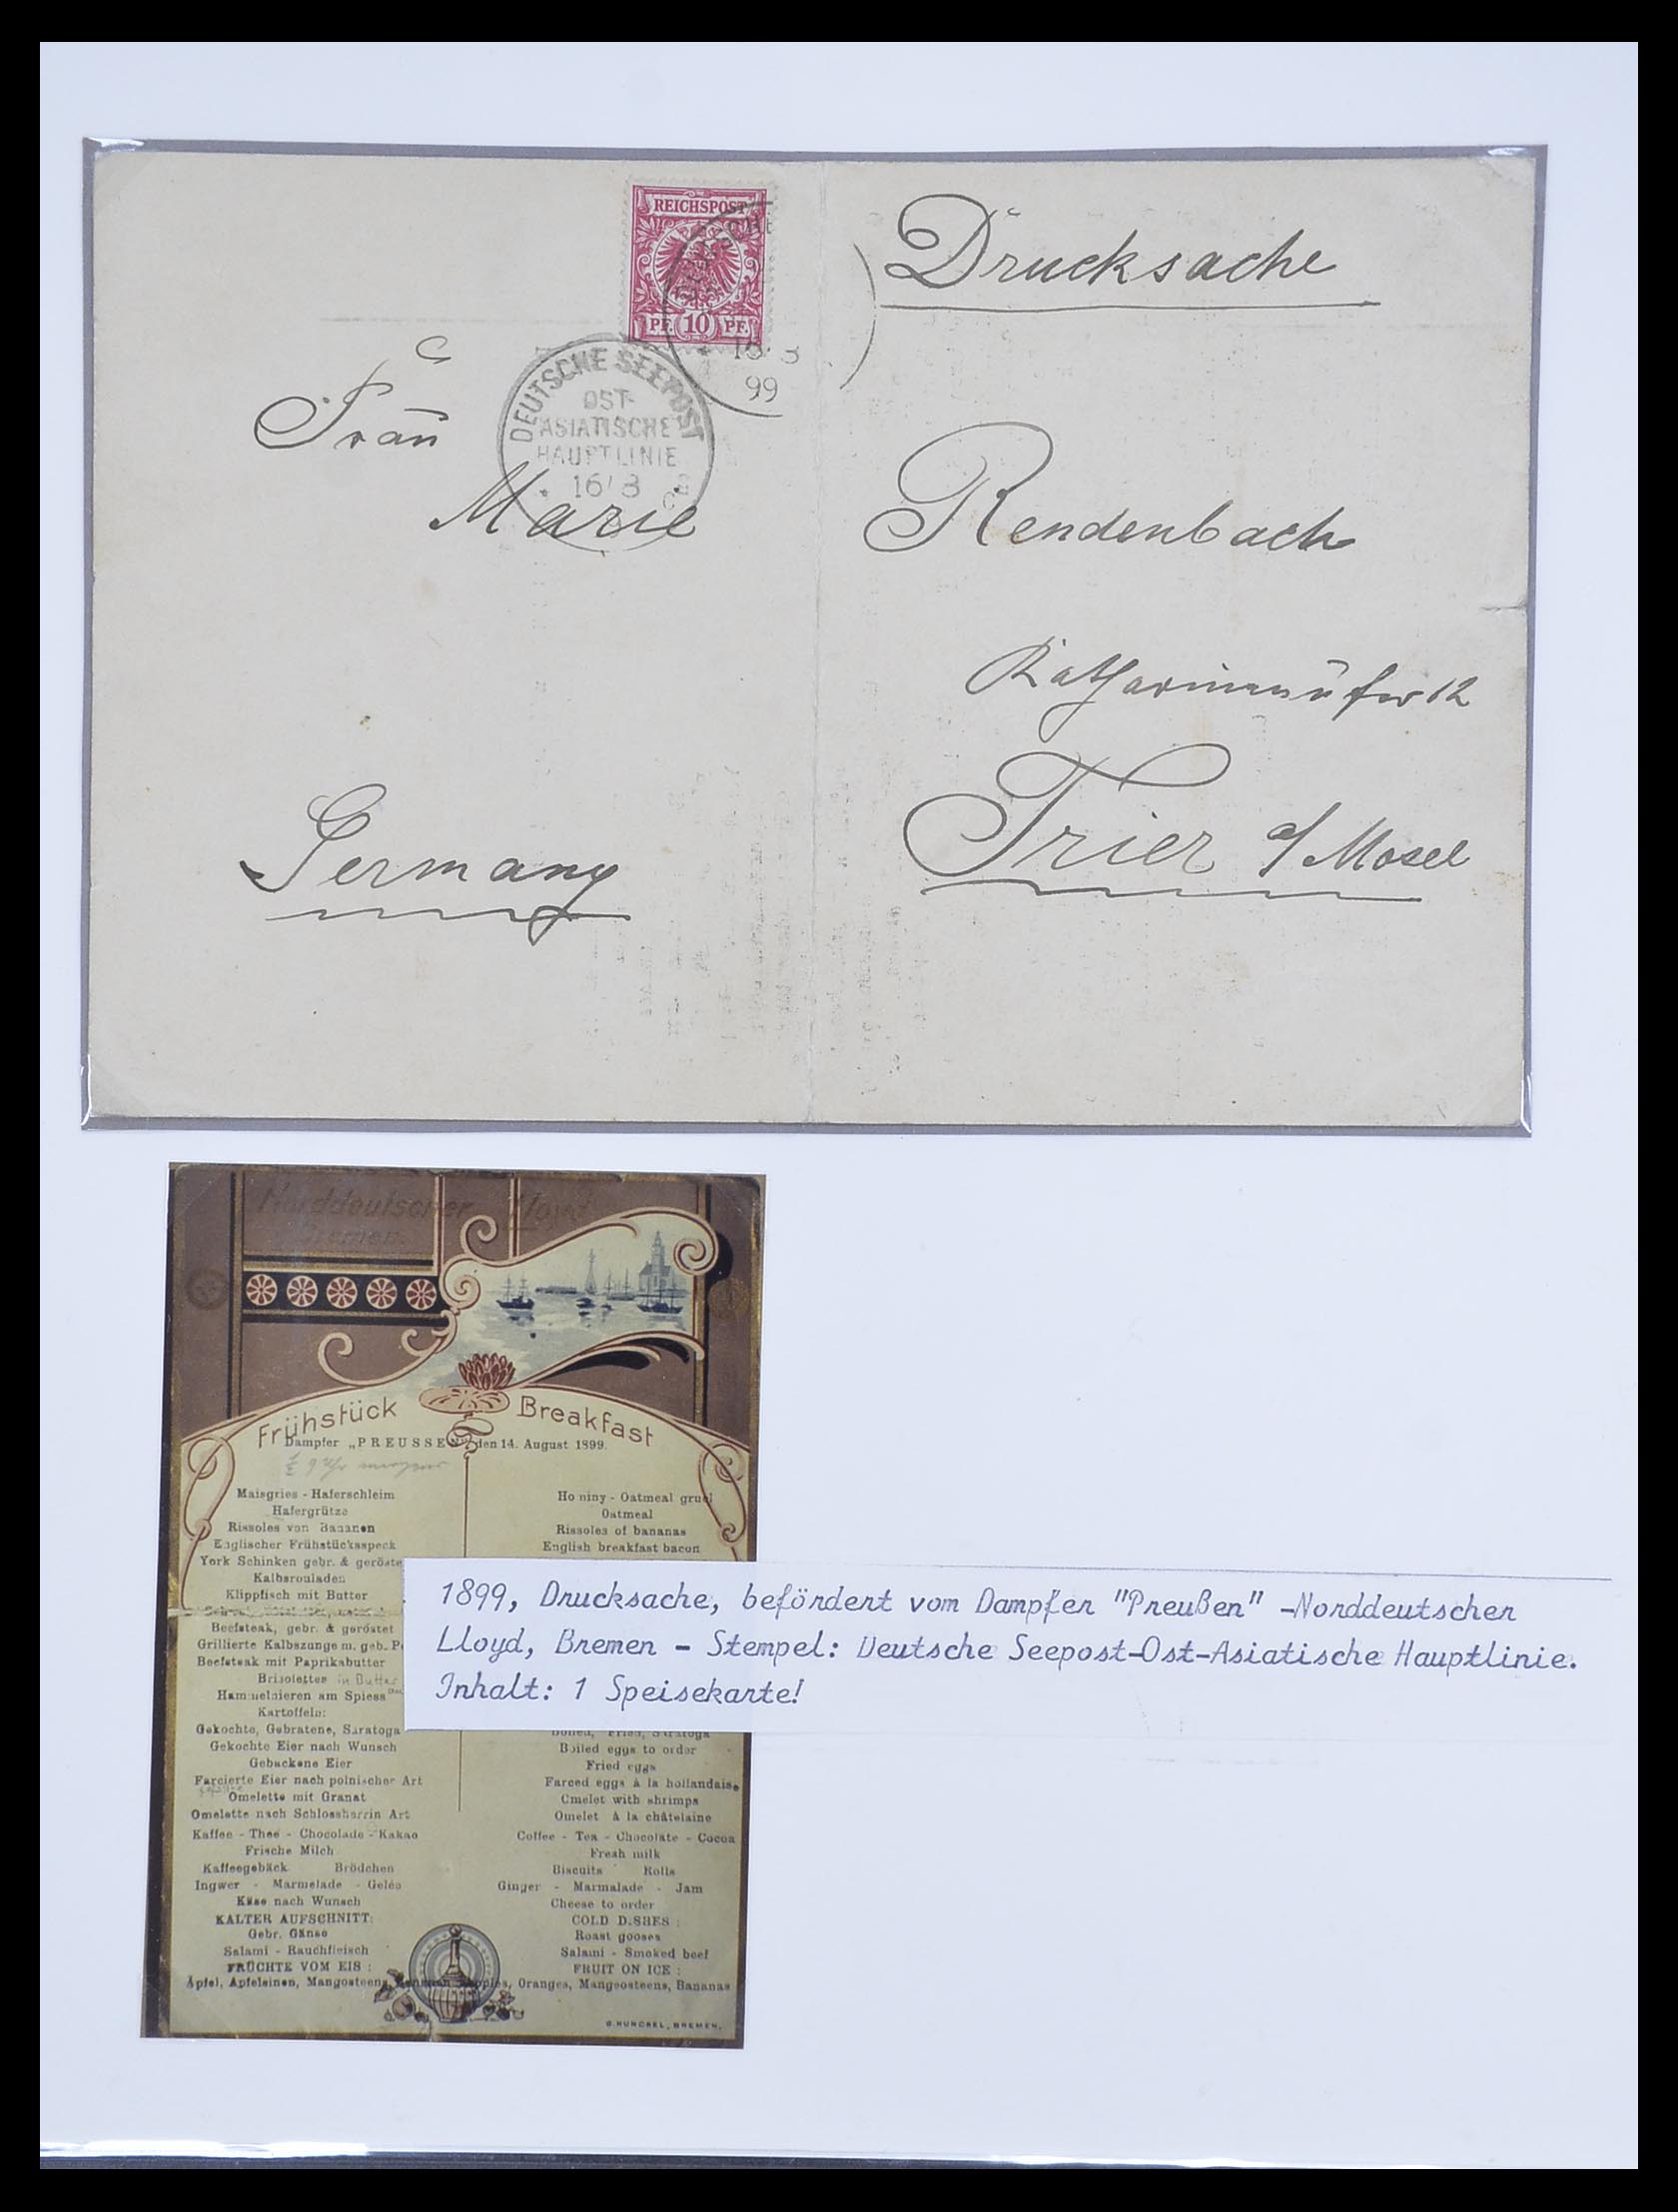 REICHSPOST
PF. 10 PF.
99
DEUTSCHE SEEPOST
OST-
ASIATISCHE
HAUPTLINIE
16/8
Drucksache
Frau
Marie
Rendenbach
Katharinenufer 12
Germany
Trier a/Mosel
Norddeutscher Lloyd
Bremen.
Frühstück
Breakfast
Dampfer „PREUSSEN" den 14. August 1899.
Maisgries - Haferschleim
Hafergrütze
Rissoles von Bananen
Englischer Frühstücksspeck
York Schinken gebr. & geröste
Kalbsrouladen
Klippfisch mit Butter
Beefsteak, gebr. & geröstet
Grillierte Kalbszunge m. geb. P
Beefsteak mit Paprikabutter
Brisoletten in Butter
Hammelnieren am Spiess
Kartoffeln:
Gekochte, Gebratene, Saratoga
Gekochte Eier nach Wunsch
Gebackene Eier
Farcierte Eier nach polnischer Art
Omelette mit Granat
Omelette nach Schlossherrin Art
Kaffee - Thee - Chocolade - Kakao
Frische Milch
Kaffeegebäck Brödchen
Ingwer - Marmelade - Gelée
Käse nach Wunsch
KALTER AUFSCHNITT:
Gebr. Gänse
Salami - Rauchfleisch
FRÜCHTE VOM EIS :
Äpfel, Apfelsinen, Mangosteens,
Hominy - Oatmeal gruel
Oatmeal
Rissoles of bananas
English breakfast bacon
Boiled, Fried, Saratoga
Boiled eggs to order
Fried eggs
Farced eggs à la hollandaise
Omelet with shrimps
Omelet à la châtelaine
Coffee - Tea - Chocolate - Cocoa
Fresh milk
Biscuits Rolls
Ginger - Marmalade - Jam
Cheese to order
COLD DISHES :
Roast gooses
Salami - Smoked beef
FRUIT ON ICE :
Apples, Oranges, Mangosteens, Bananas
G. HUNCKEL, BREMEN.
1899, Drucksache, befördert vom Dampfer "Preußen" -Norddeutscher
Lloyd, Bremen - Stempel: Deutsche Seepost-Ost-Asiatische Hauptlinie.
Inhalt: 1 Speisekarte!